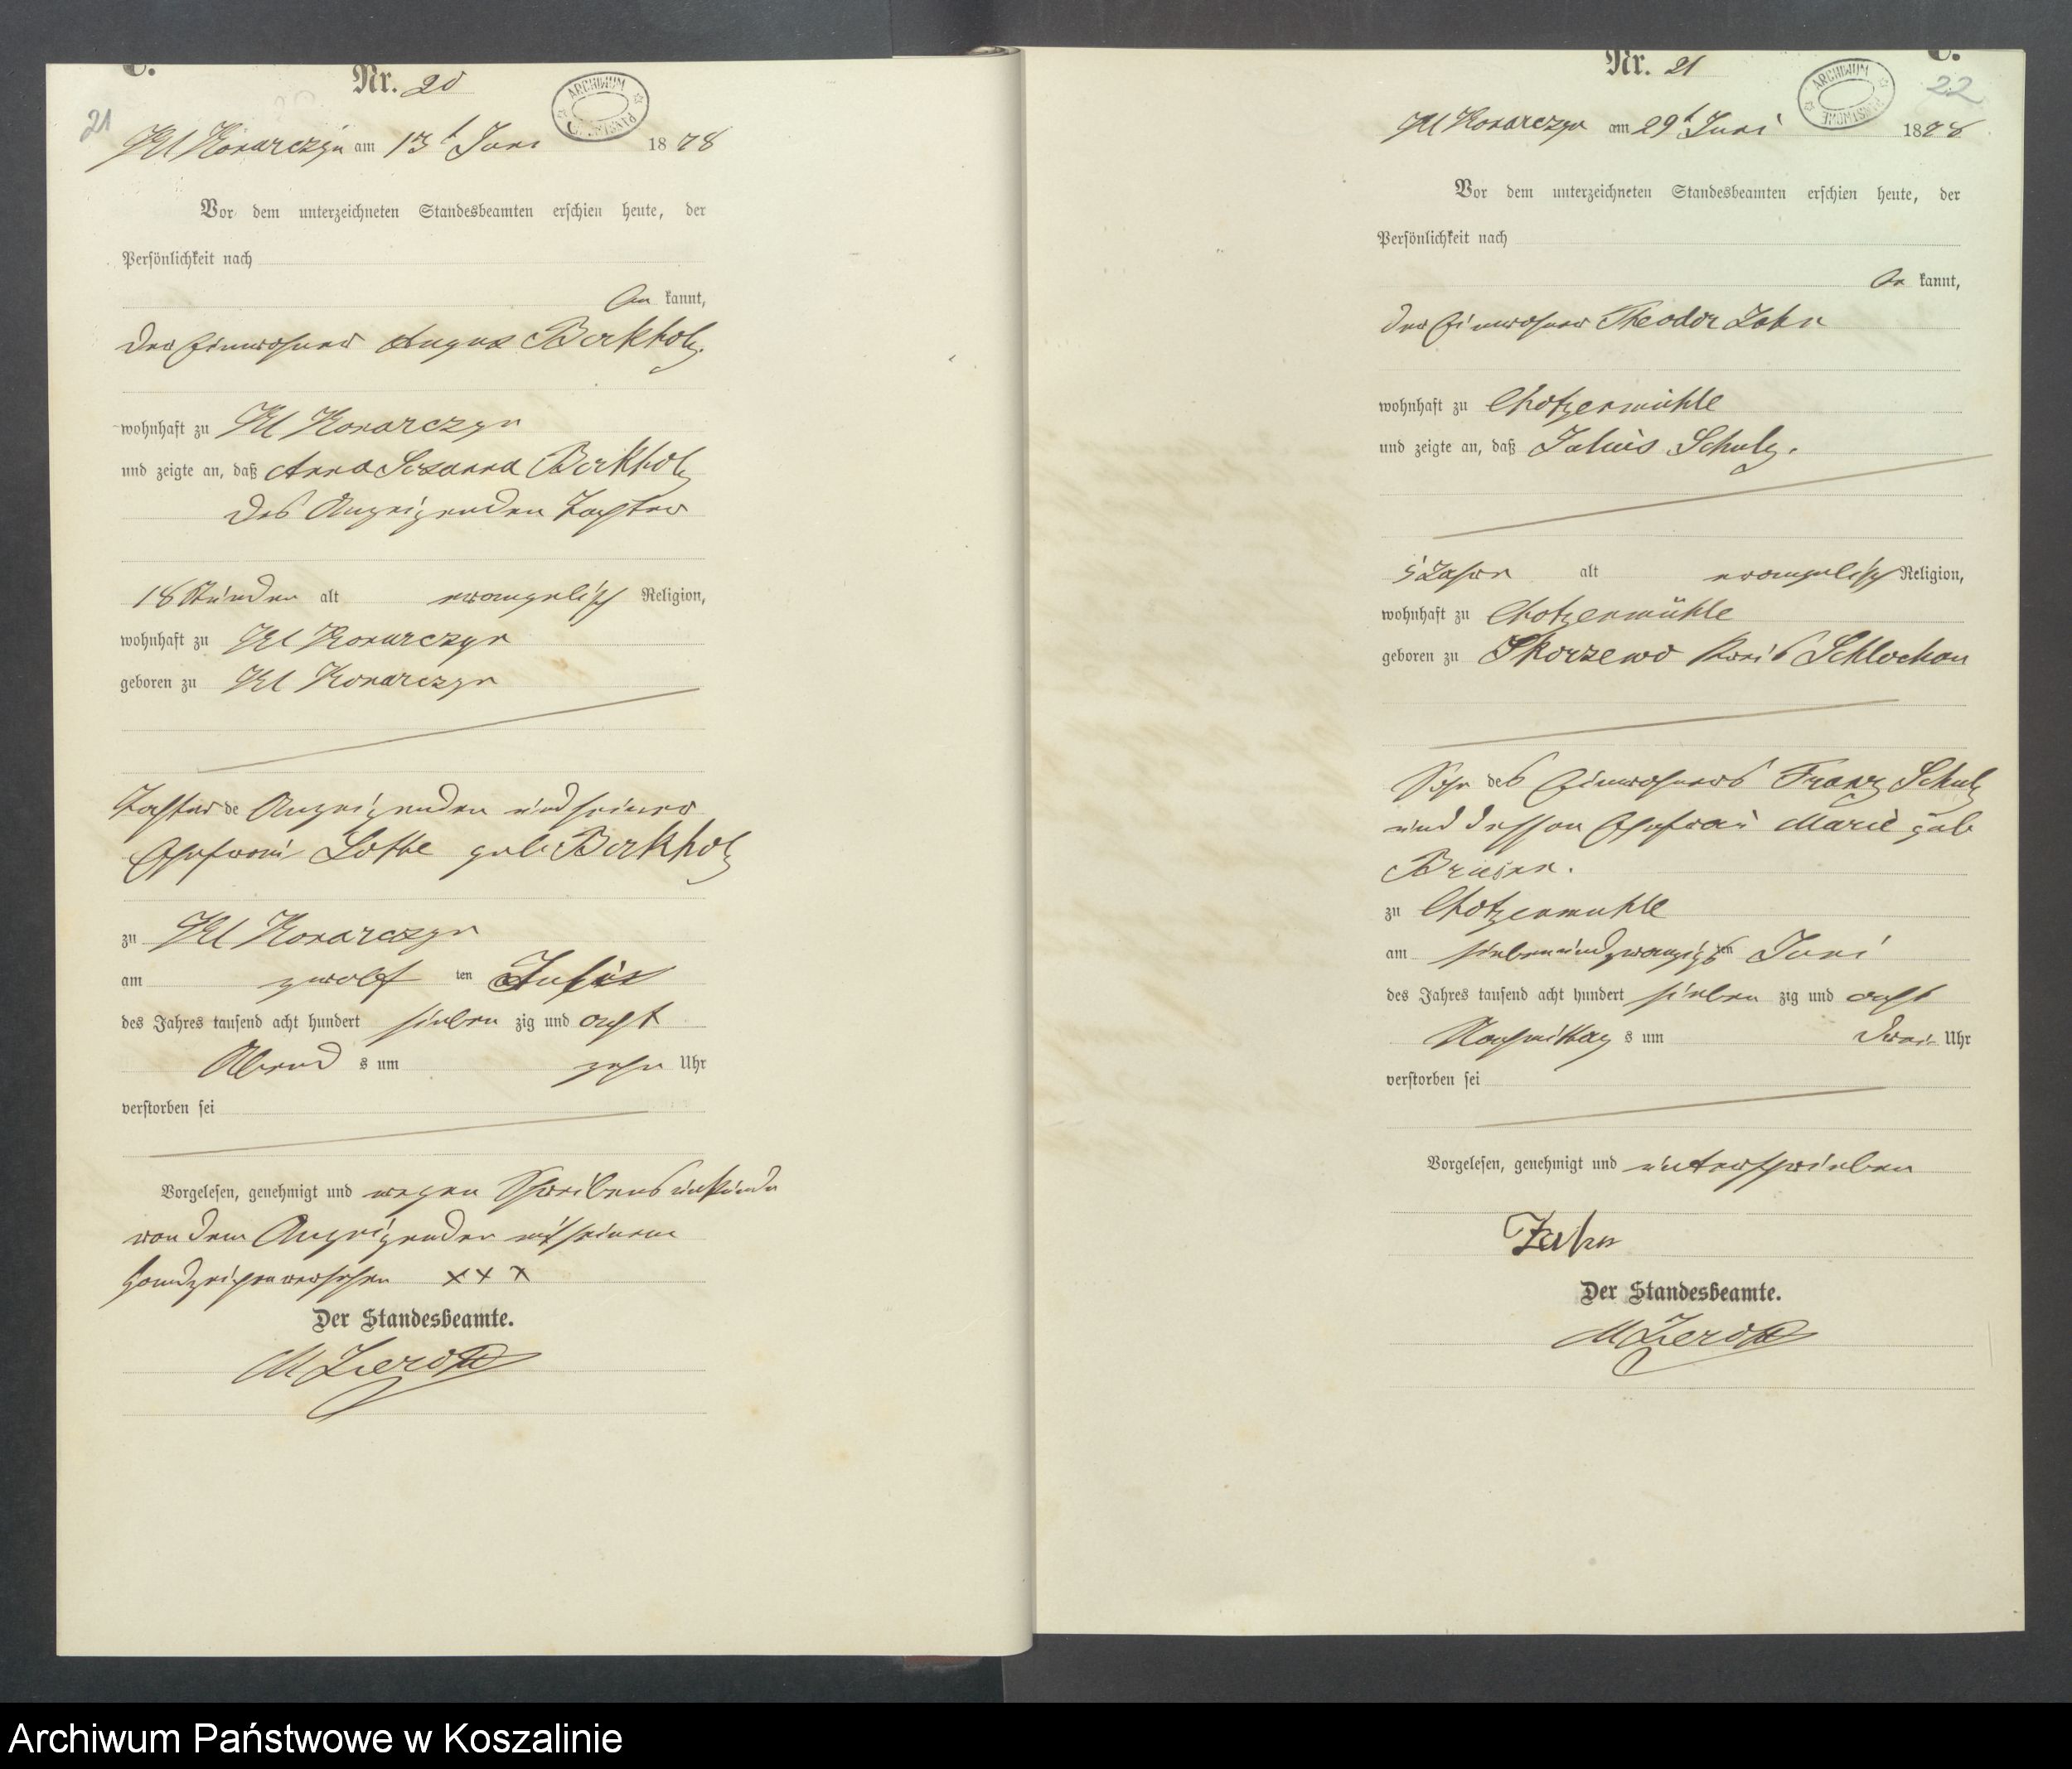 C.
Nr. 20
ARCHIWUM PAŃSTWOWE
21
Kl Konarczyn am 13t Juni 1878
Vor dem unterzeichneten Standesbeamten erschien heute, der
Persönlichkeit nach
be kannt,
der Einwohner August Birkholz.
wohnhaft zu Kl Konarczyn
und zeigte an, daß Anna Susanna Birkholz
des Anzeigenden Tochter
18 Stunden alt evangelisch Religion,
wohnhaft zu Kl Konarczyn
geboren zu Kl Konarczyn
Tochter de Anzeigenden und seiner
Ehefrau Lotte geb. Birkholz
zu Kl Konarczyn
am zwölf ten
des Jahres tausend acht hundert sieben zig und acht
Abend s um zehn Uhr
verstorben sei
Vorgelesen, genehmigt und wegen Schreibensunkunde
von dem Anzeigenden mit seinem
Handzeichen versehen XXX
Der Standesbeamte.
M Zierott
C.
Nr. 21
ARCHIWUM PAŃSTWOWE
22
Kl Konarczyn am 29t Juni 1878
Vor dem unterzeichneten Standesbeamten erschien heute, der
Persönlichkeit nach
be kannt,
der Einwohner Theodor Zahn
wohnhaft zu Chotzenmühle
und zeigte an, daß Julius Schulz.
5 Jahr alt evangelisch Religion,
wohnhaft zu Chotzenmühle
geboren zu Skorzewo Kreis Schlochau
Sohn des Einwohners Franz Schulz
und dessen Ehefrau Marie geb
zu Chotzenmuhle
am siebenundzwanzigsten Juni
des Jahres tausend acht hundert sieben zig und acht
Nachmittag s um drei Uhr
verstorben sei
Vorgelesen, genehmigt und unterschrieben
Zahn
Der Standesbeamte.
M Zierott
Archiwum Państwowe w Koszalinie